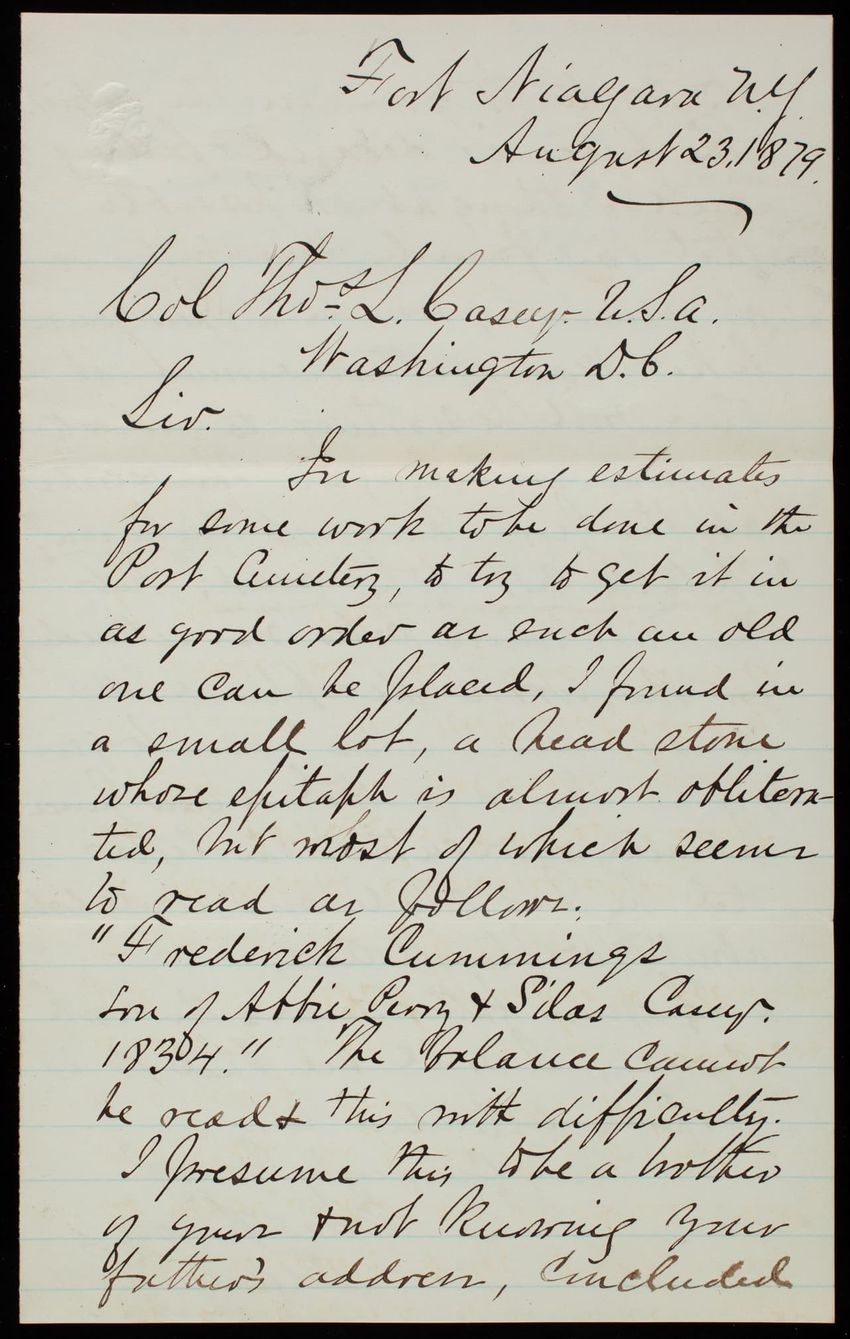 Fort Niagara N.Y.
August 23. 1879.
Col Thos. L. Casey. U.S.A.
Washington D.C.
Sir.
In making estimates
for some work to be done in the
Post Cemetery, to try to get it in
as good order as such an old
one can be placed, I found in
a small lot, a head stone
whose epitaph is almost oblitera-
ted, but most of which seems
to read as follows:
"Frederick Cummings
son of Abbie Perry & Silas Casey.
1834." The balance cannot
be read & this with difficulty.
I presume this to be a brother
of yours & not knowing your
father's address, concluded